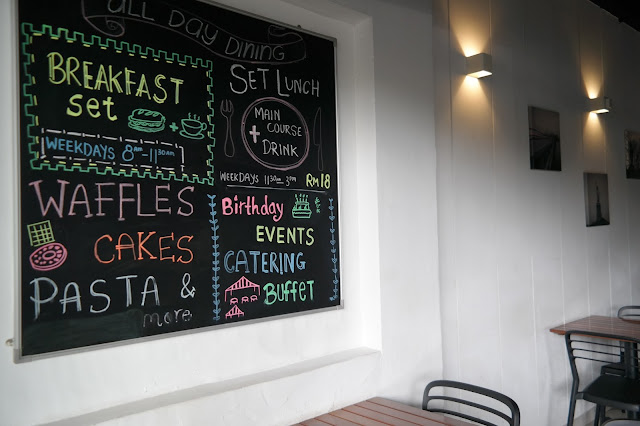 ALL DAY DINING
BREAKFAST
set
+
WEEKDAYS 8AM-11:30AM
SET LUNCH
MAIN
COURSE
+
DRINK
WEEKDAYS 11:30AM 3PM RM18
WAFFLES
CAKES
PASTA &
more
Birthday
EVENTS
CATERING
BUFFET